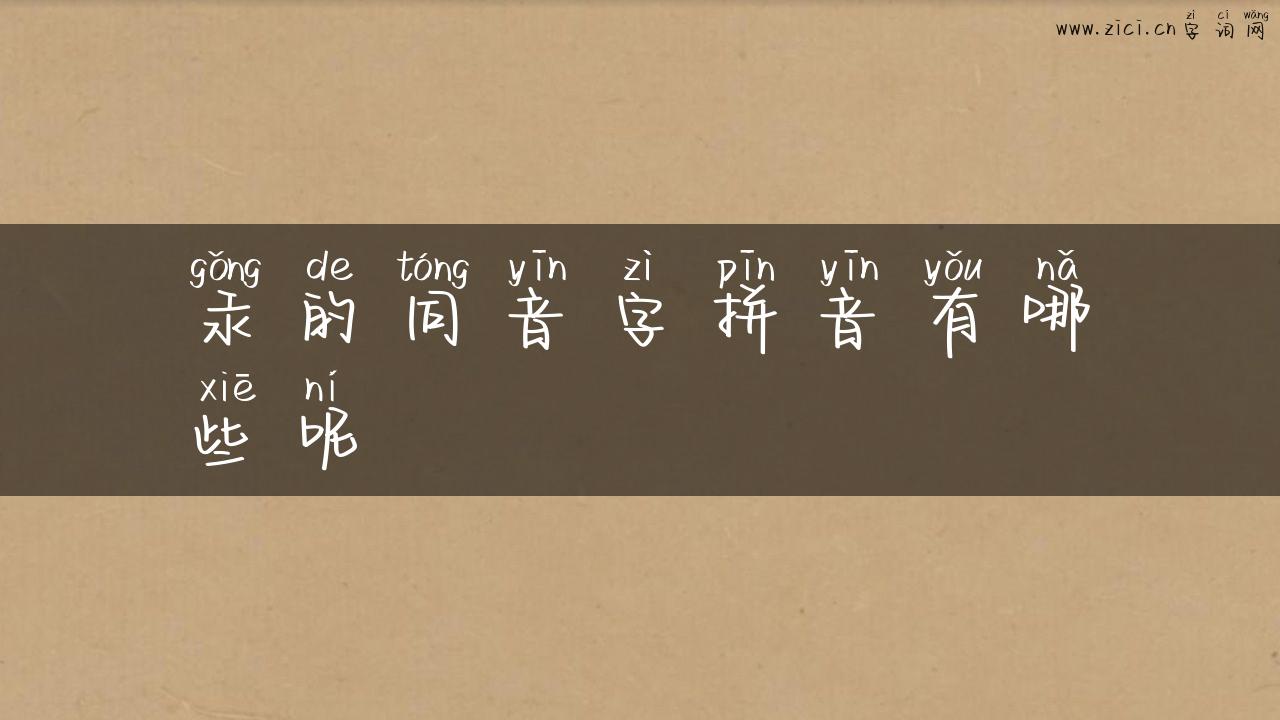 zì cí wǎng
www.zici.cn 字 词 网
gǒng de tóng yīn zì pīn yīn yǒu nǎ
汞 的 同 音 字 拼 音 有 哪
xiē ní
些 呢